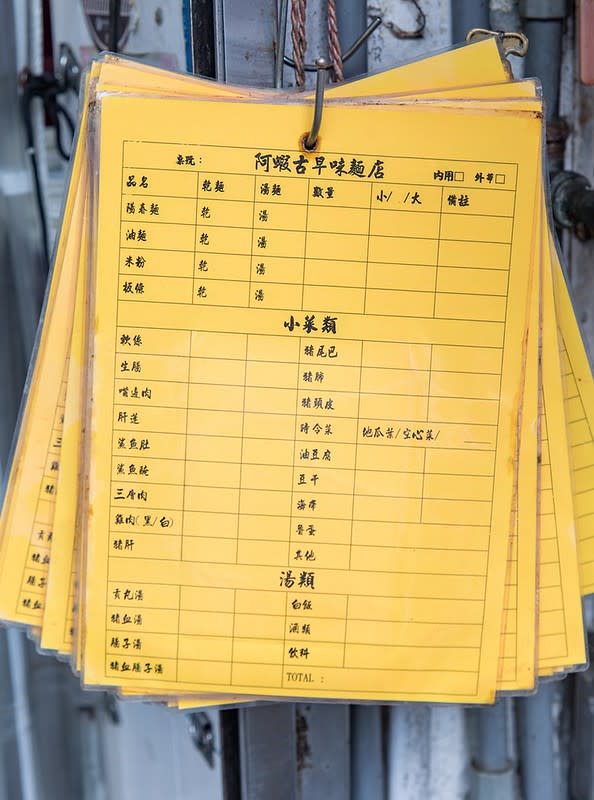 阿蝦古早味麵店
桌號： 內用□ 外帶□
品名 乾麵 湯麵 數量 小/ /大 備註
陽春麵 乾 湯
油麵 乾 湯
米粉 乾 湯
板條 乾 湯
小菜類
軟絲 豬尾巴
生腸 豬肺
嘴边肉 豬頭皮
肝連 時令菜 地瓜葉/空心菜/
鯊魚肚 油豆腐
鯊魚腌 豆干
三層肉 海帶
雞肉(黑/白) 魯蛋
豬肝 其他
湯類
貢丸湯 白飯
豬血湯 酒類
腸子湯 飲料
豬血腸子湯 TOTAL :